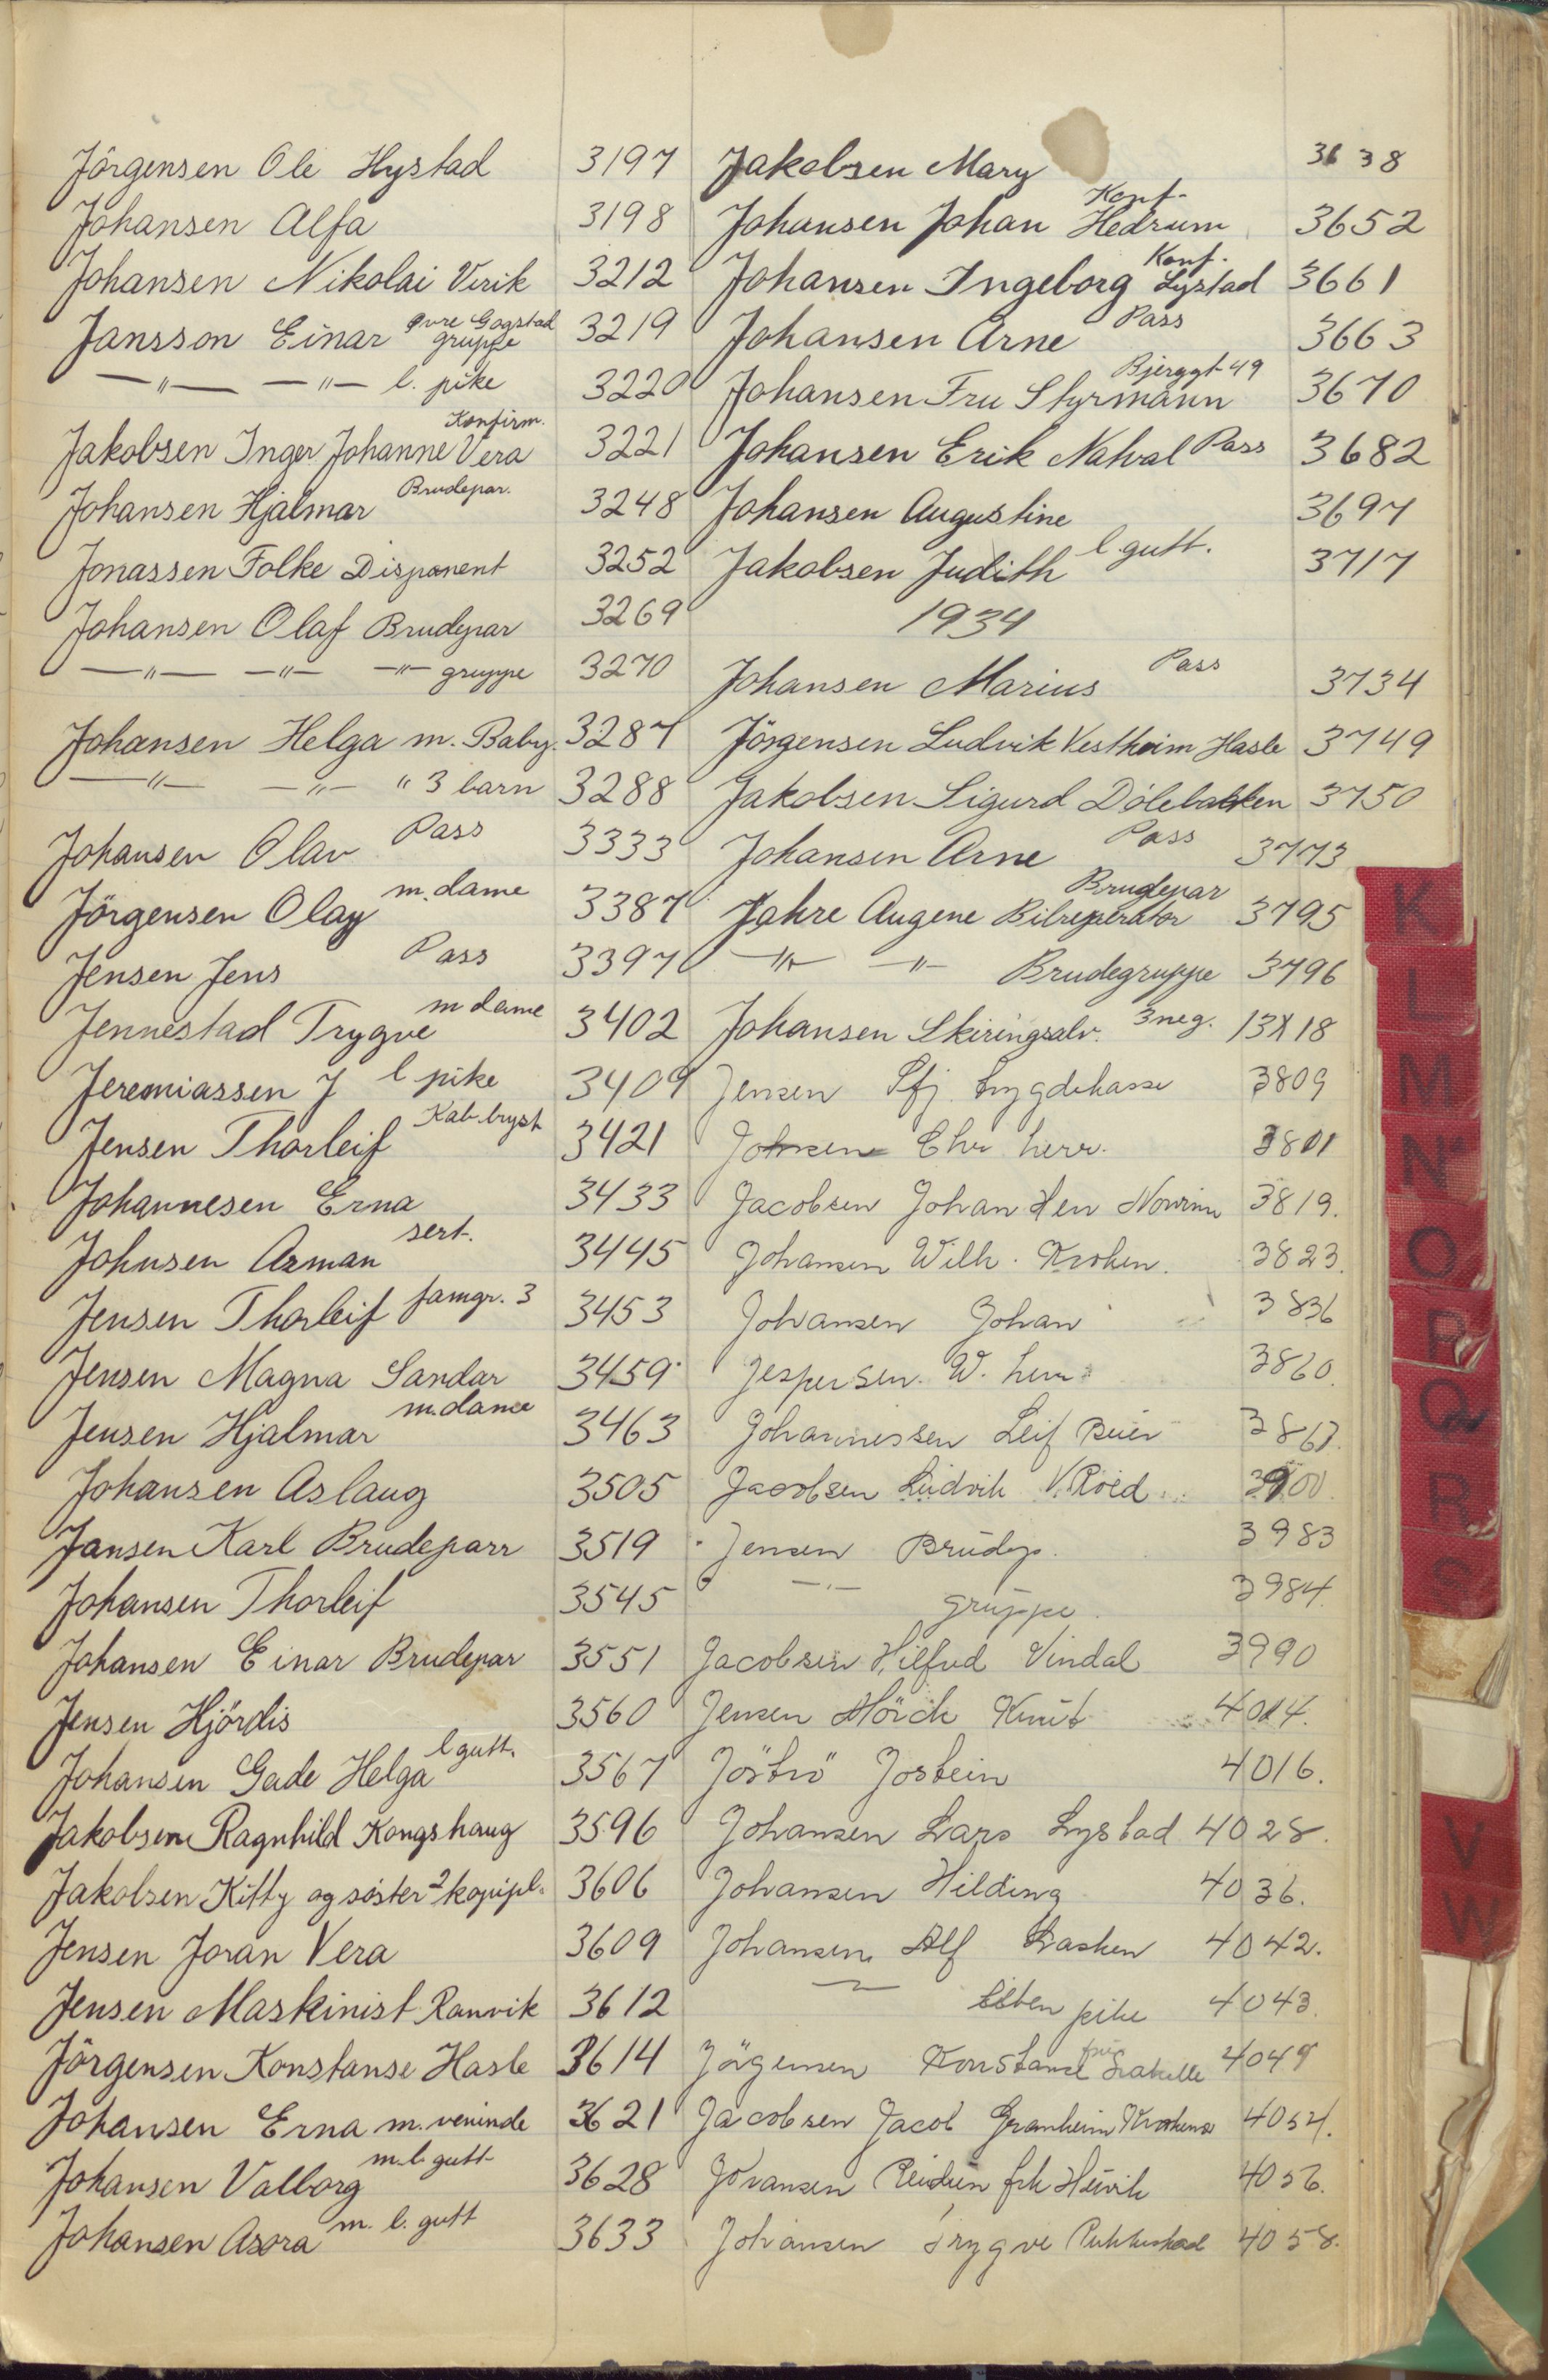 Jörgensen Ole Hystad 3197
Johansen Alfa 3198
Johansen Nikolai Virik 3212
Jansson Einar Øvre Gogstad gruppe 3219
—"— —"— l. pike 3220
Jakobsen Inger Johanne Vera Konfirm. 3221
Johansen Hjalmar Brudepar. 3248
Jonassen Folke Disponent 3252
Johansen Olaf Brudepar 3269
—"— —"— —"— gruppe 3270
Johansen Helga m. Baby. 3287
—"— —"— " 3 barn 3288
Johansen Olav Pass 3333
Jörgensen Olav m. dame 3387
Jensen Jens Pass 3397
Jennestad Trygve m dame 3402
Jeremiassen J l pike 3409
Jensen Thorleif Kab. bryst 3421
Johannesen Erna 3433
Johnsen Arman sert. 3445
Jensen Thorleif famgr. 3 3453
Jensen Magna Sandar 3459
Jensen Hjalmar m. dame 3463
Johansen Aslaug 3505
Jansen Karl Brudeparr 3519
Johansen Thorleif 3545
Johansen Einar Brudepar 3551
Jensen Hjördis 3560
Johansen Gade Helga l gutt. 3567
Jakobsen Ragnhild Kongshaug 3596
Jakobsen Kitty og søster 2 kopipl. 3606
Jensen Joran Vera 3609
Jensen Maskinist Ranvik 3612
Jörgensen Konstanse Hasle 3614
Johansen Erna m. veninde 3621
Johansen Valborg m. l. gutt 3628
Johansen Asora m. l. gutt 3633
Jakobsen Mary 3638
Johansen Johan Hedrum Konf. 3652
Johansen Ingeborg Lystad Konf. 3661
Johansen Arne Pass 3663
Johansen Fru Styrmann Bjerggt 49 3670
Johansen Erik Nalval Pass 3682
Johansen Augustine 3697
Jakobsen Judith l. gutt. 3717
1934
Johansen Marius Pass 3734
Jörgensen Ludvik Vestheim Hasle 3749
Jakobsen Sigurd Dölebakken 3750
Johansen Arne Pass 3773
Jahre Augene Bilreperatør Brudepar 3795
—"— —"— Brudegruppe 3796
Johansen Skiringsalv. 3 neg. 13X18
Jensen Sfj. trygdekasse 3809
Johnsen Chr herr. 3801
Jacobsen Johan 3819.
Johansen Wilh. Krohen. 3823.
Johansen Johan 3836
Jespersen W. herr 3860.
Johannessen Leif Beier 3863.
Jacobsen Ludvik V. Röed 3900.
Jensen Brudep. 3983
—"— gruppe. 3984.
Jacobsen Hilfred Vindal 3990
Jensen Mörch Knut 4014.
Jöströ Jostein 4016.
Johansen Lars Lystad 4028.
Johansen Hilding 4036.
Johansen Alf Lasken 4042.
—"— liten pike 4043.
Jörgensen Konstanse fru 4049
Jacobsen Jacob Granheim Krokena 4054.
Johansen frk Heivik 4056.
Johansen Trygve Pukkestad 4058.
K
L
M
N
O
P
Q
R
S
V
W